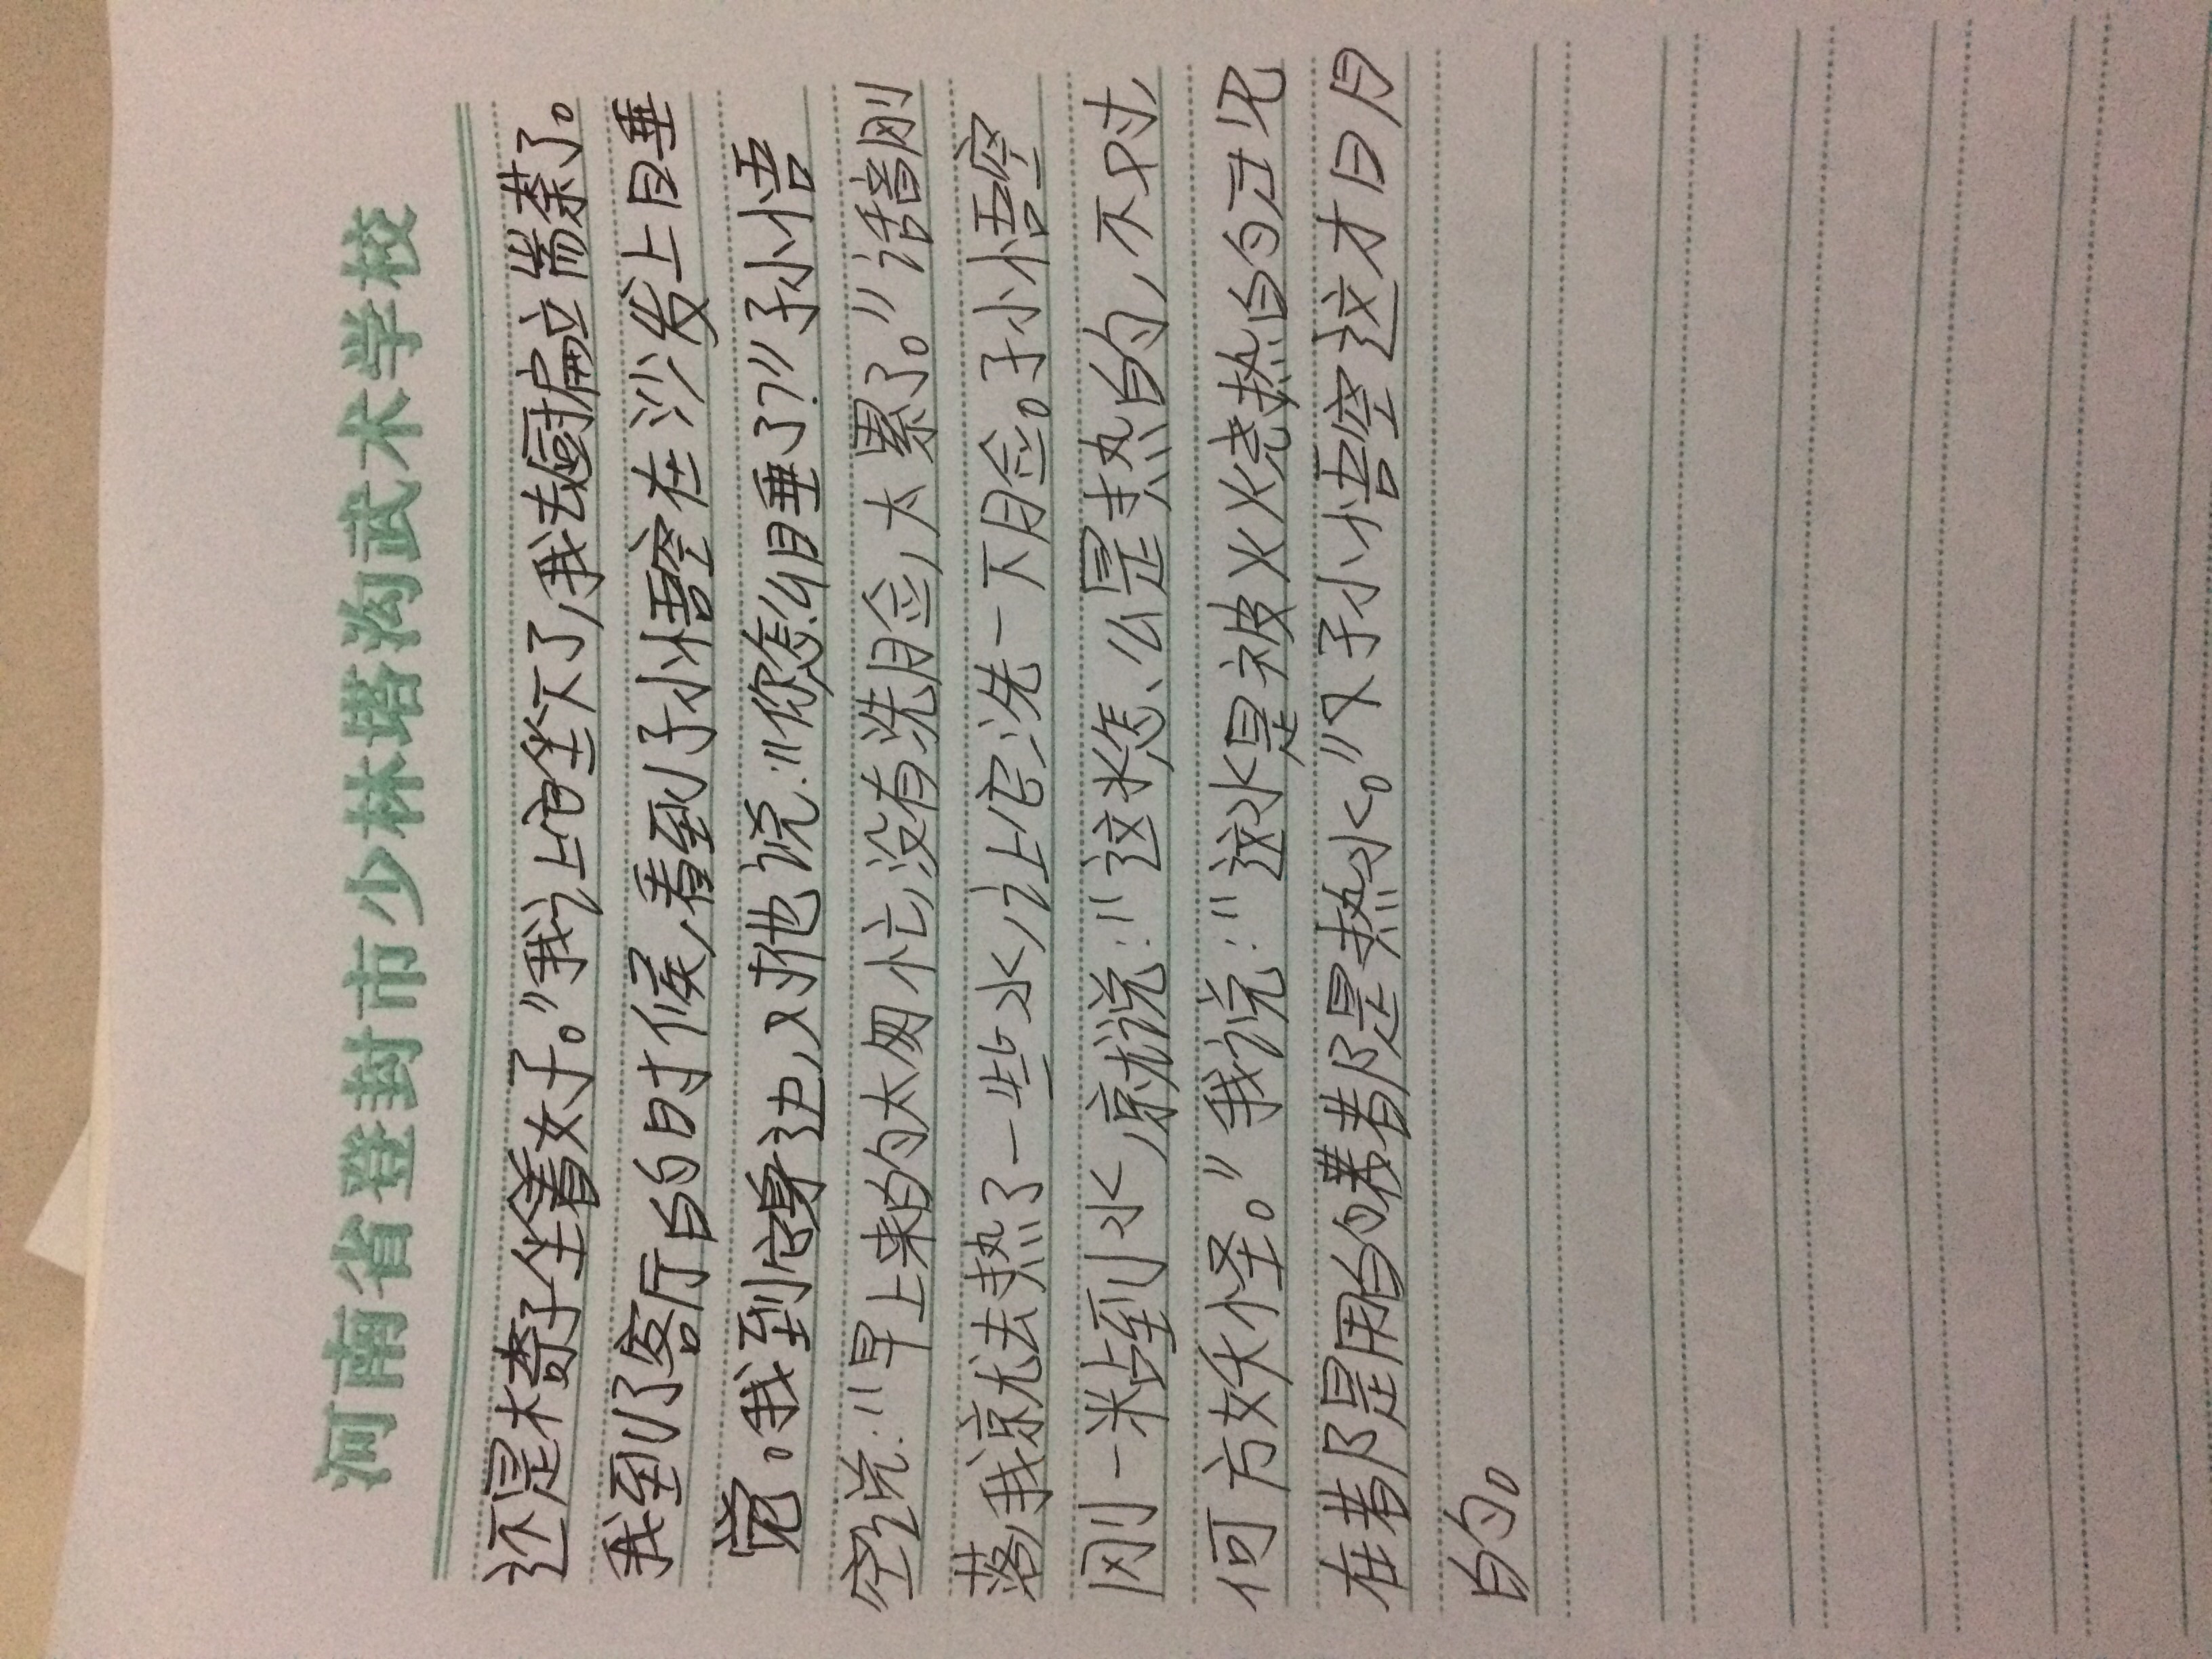 河南省登封市少林塔沟武术学校
还是椅子坐着好。”我让它坐下了,我去厨房端茶了。
我到了客厅的时候,看到孙悟空在沙发上睡
觉。我到它身边,对他说:“你怎么睡了?”孙悟
空说:“早上来的太匆忙,没有洗脸,太累了。”话音刚
落,我就去热了一些水,让它洗一下脸。孙悟空
刚一粘到水,就说:“这水怎么是热的,不对,
何方妖怪。”我说:“这水是被火烧热的,现
在都是用的都是热水。”孙悟空这才明
白的。